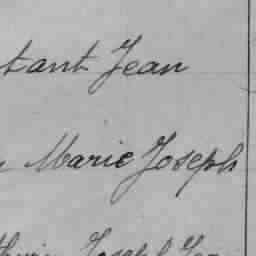 tant Jean
Marie Joseph
Joseph